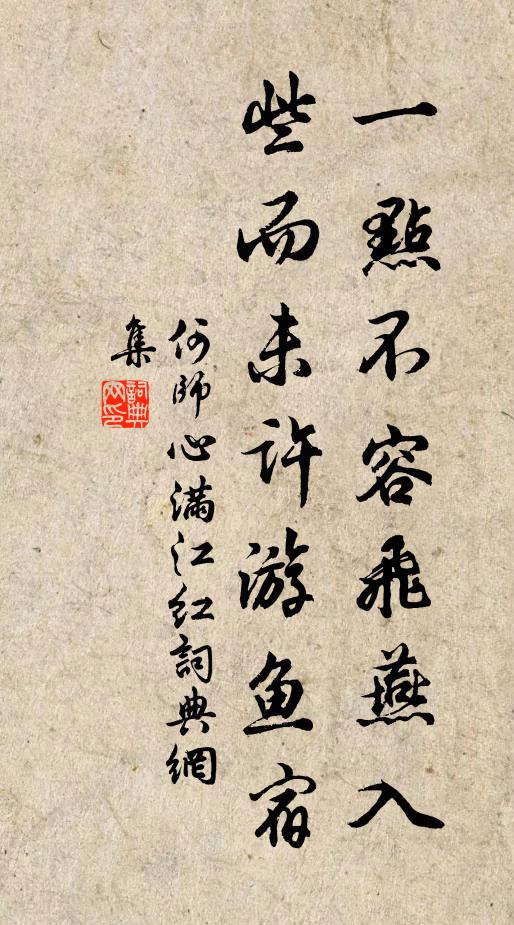 一點不容飛燕入
些而未許游鱼宿
何師心滿江红詞典網
集
詞典網印